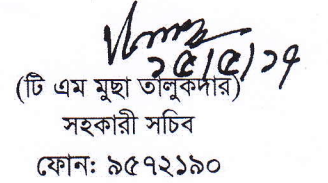 ১৫/৫/১৭
(টি এম মুছা তালুকদার)
সহকারী সচিব
ফোন: ৯৫৭২১৯০